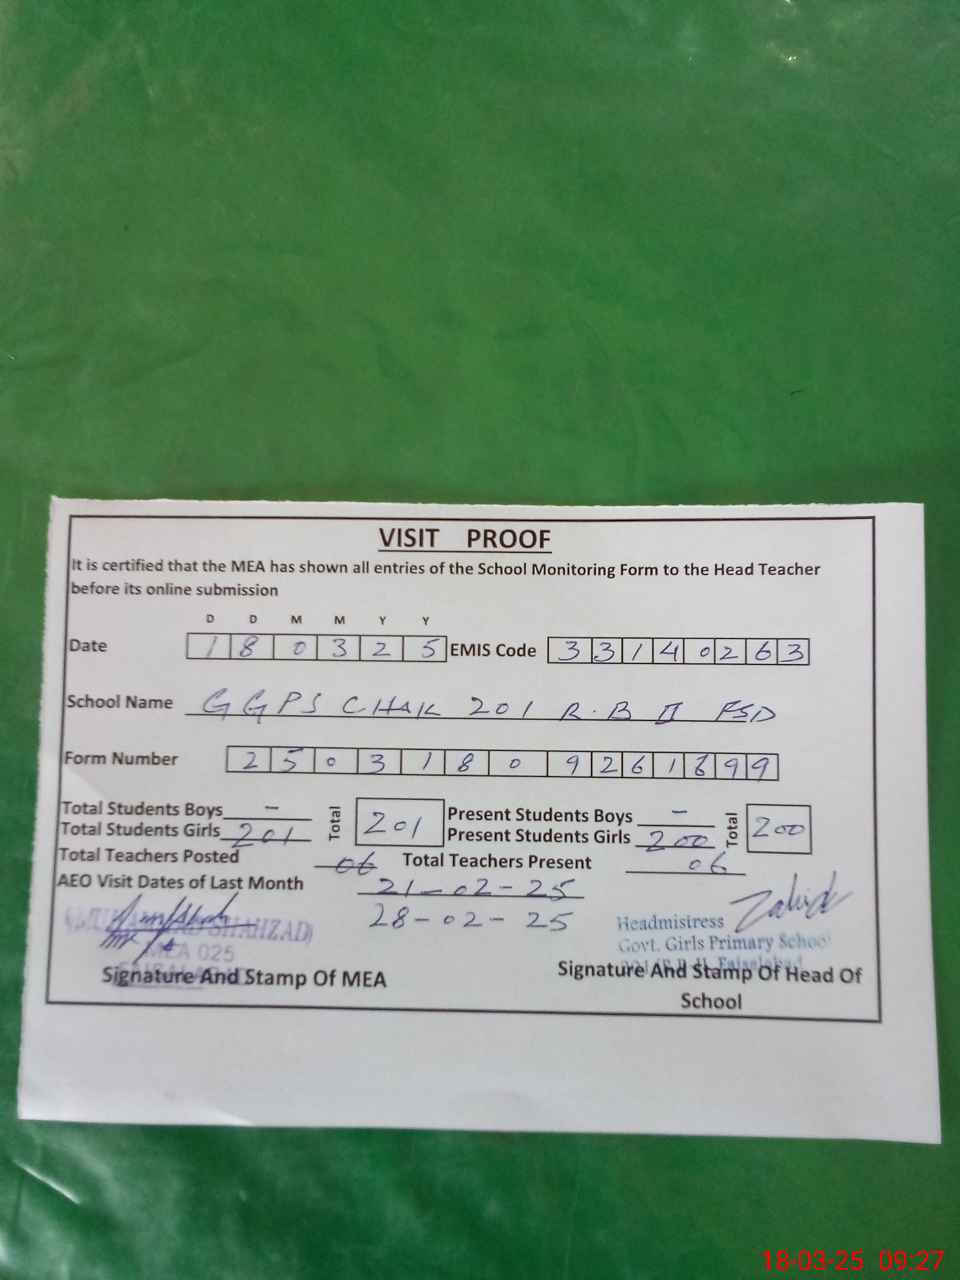 VISIT PROOF
It is certified that the MEA has shown all entries of the School Monitoring Form to the Head Teacher
before its online submission
D D M M Y Y
Date 1 8 0 3 2 5 EMIS Code 3 3 1 4 0 2 6 3
School Name GGPS CHAK 201 R.B II FSD
Form Number 2 5 0 3 1 8 0 9 2 6 1 8 9 9
Total Students Boys - Total 201 Present Students Boys - Total 200
Total Students Girls 201 Present Students Girls 200
Total Teachers Posted 06 Total Teachers Present 06
AEO Visit Dates of Last Month 21-02-25
28-02-25
SHAHZAD)
MEA 025
Signature And Stamp Of MEA
Headmistress
Govt. Girls Primary School
Faisalabad
Signature And Stamp Of Head Of
School
18-03-25 09:27